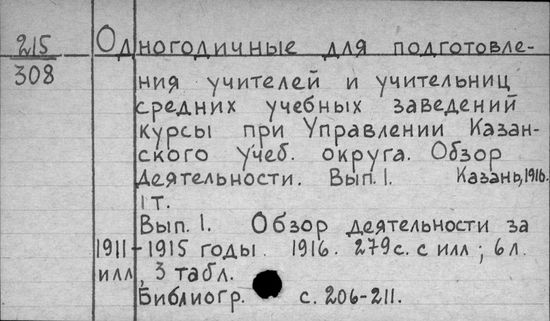 215
308
Одногодичные для подготовле-
ния учителей и учительниц
средних учебных заведений
курсы при Управлении Казан-
ского учеб. округа. Обзор
деятельности. Вып. 1. Казань, 1916.
1 т.
Вып. 1. Обзор деятельности за
1911-1915 годы. 1916. 279 с. с илл; 6 л.
илл, 3 табл.
Библиогр. с. 206-211.